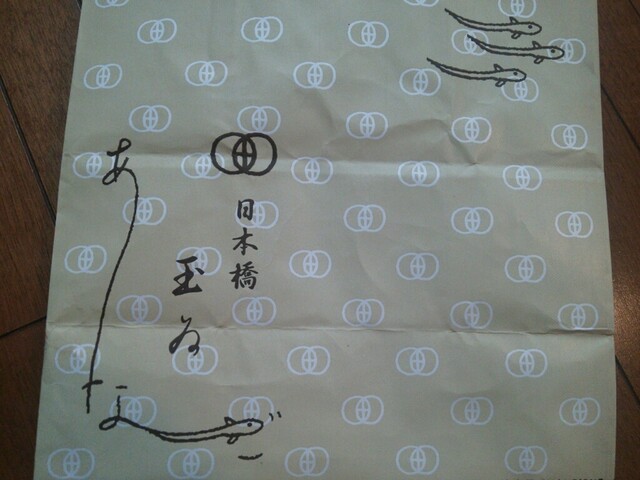 日本橋
玉ゐ
あなご